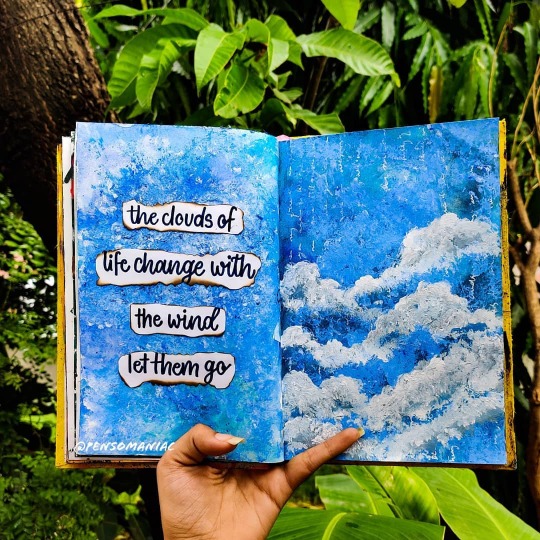 the clouds of
life change with
the wind
let them go
@PENSOMANIAC